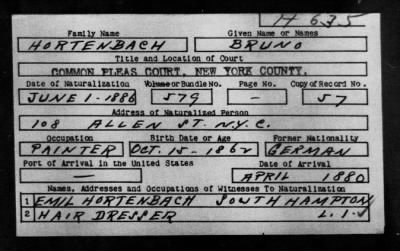 H 635
Family Name Given Name or Names
HORTENBACH BRUNO
Title and Location of Court
COMMON PLEAS COURT, NEW YORK COUNTY.
Date of Naturalization Volume or Bundle No. Page No. Copy of Record No.
JUNE 1-1886 579 - 57
Address of Naturalized Person
108 ALLEN ST. N.Y.C.
Occupation Birth Date or Age Former Nationality
PAINTER OCT. 15-1862 GERMAN
Port of Arrival in the United States Date of Arrival
— APRIL 1880
Names, Addresses and Occupations of Witnesses To Naturalization
1 EMIL HORTENBACH SOUTH HAMPTON
2 HAIR DRESSER L.I.